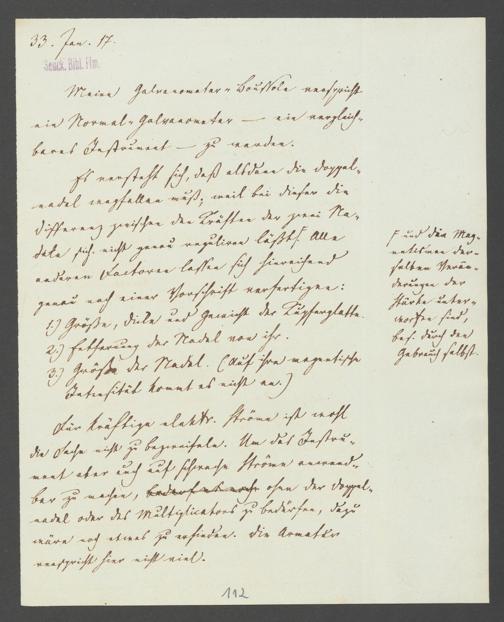 33. Jan. 17.
Senck. Bibl. Ffm.
Meine Galvanometer-Boussole verspricht
ein Normal-Galvanometer — ein vergleich-
bares Instrument — zu werden.
Es versteht sich, daß alsdann die Doppel-
nadel wegfallen muß; weil bei dieser die
Differenz zwischen den Kräften der zwei Na-
deln sich nicht genau reguliren läßt. Alle
anderen Factoren lassen sich hinreichend
genau nach einer Vorschrift verfertigen:
1.) Größe, Dicke und Gewicht der Kupferplatte.
2.) Entfernung der Nadel von ihr.
3.) Größe der Nadel. (Auf ihre magnetische
Intensität kommt es nicht an.)
Für kräftige elektr. Ströme ist wohl
die Sache nicht zu bezweifeln. Um das Instru-
ment aber auch auf schwache Ströme anwend-
bar zu machen, bedarf es noch ohne der Doppel-
nadel oder des Multiplicators zu bedürfen, dazu
wäre noch etwas zu erfinden. Die Armatur
verspricht hier nicht viel.
und den Mag-
netismus der-
selben Verän-
derungen der
Stärke unter-
worfen sind,
bes. durch den
Gebrauch selbst.
112